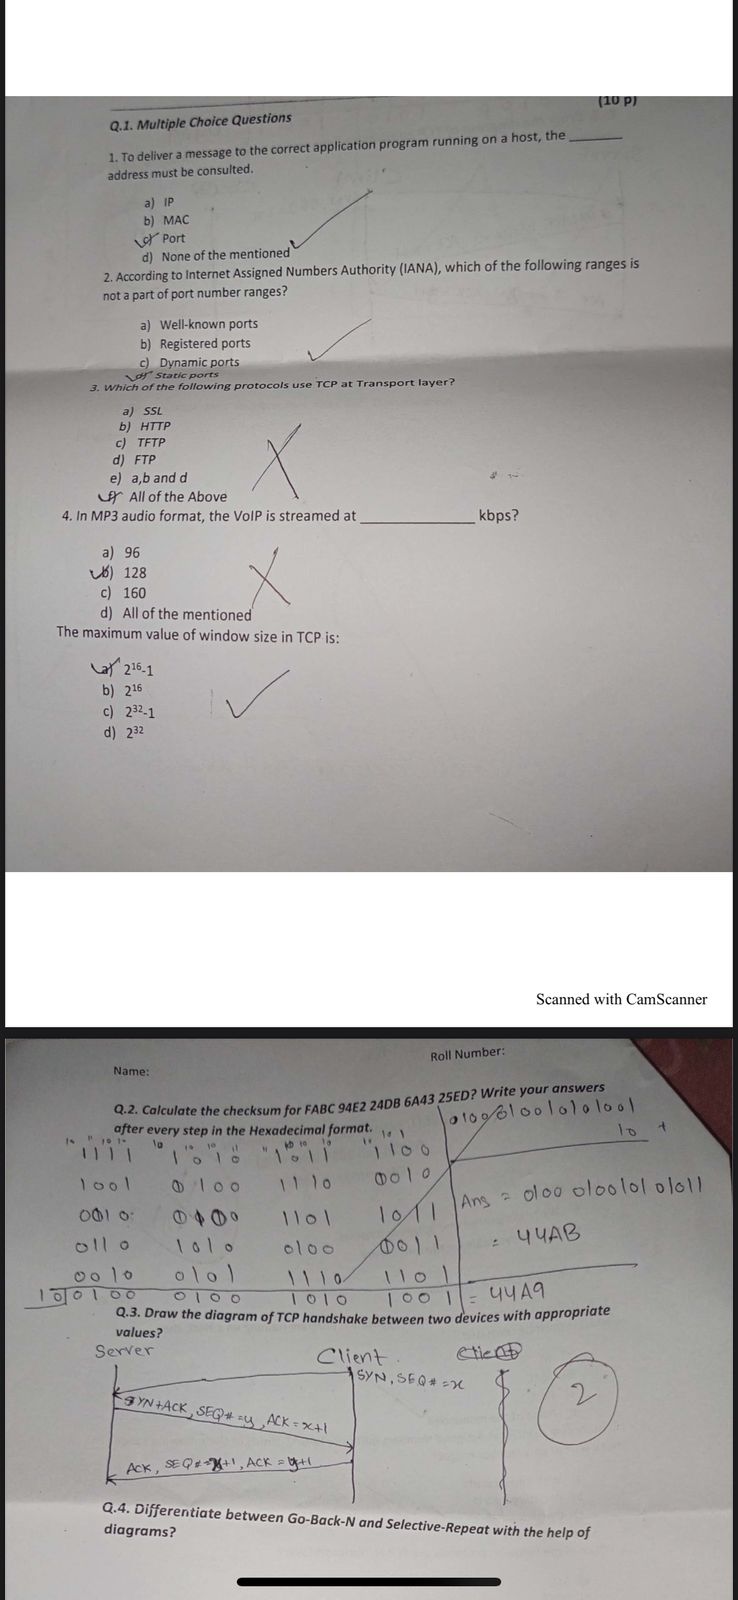 (10 p)
Q.1. Multiple Choice Questions
1. To deliver a message to the correct application program running on a host, the ________
address must be consulted.
a) IP
b) MAC
c) Port
d) None of the mentioned
2. According to Internet Assigned Numbers Authority (IANA), which of the following ranges is
not a part of port number ranges?
a) Well-known ports
b) Registered ports
c) Dynamic ports
d) Static ports
3. Which of the following protocols use TCP at Transport layer?
a) SSL
b) HTTP
c) TFTP
d) FTP
e) a,b and d
f) All of the Above
4. In MP3 audio format, the VoIP is streamed at ________________ kbps?
a) 96
b) 128
c) 160
d) All of the mentioned
The maximum value of window size in TCP is:
a) 2¹⁶-1
b) 2¹⁶
c) 2³²-1
d) 2³²
Scanned with CamScanner
Roll Number:
Name:
Q.2. Calculate the checksum for FABC 94E2 24DB 6A43 25ED? Write your answers
after every step in the Hexadecimal format.
0100 0100 1010 1001
10 +
1111 1010 1011 1100
1001 0100 1110 0010
0010 0100 1101 1011
0110 1010 0100 0011
0010 0101 1110 1101
Ans = 0100 0100 1010 1011
= 44AB
100100 0100 1010 1001 = 44A9
Q.3. Draw the diagram of TCP handshake between two devices with appropriate
values?
Server Client
SYN, SEQ# = x
2
SYN+ACK, SEQ# = y, ACK = x+1
ACK, SEQ# = x+1, ACK = y+1
Q.4. Differentiate between Go-Back-N and Selective-Repeat with the help of
diagrams?